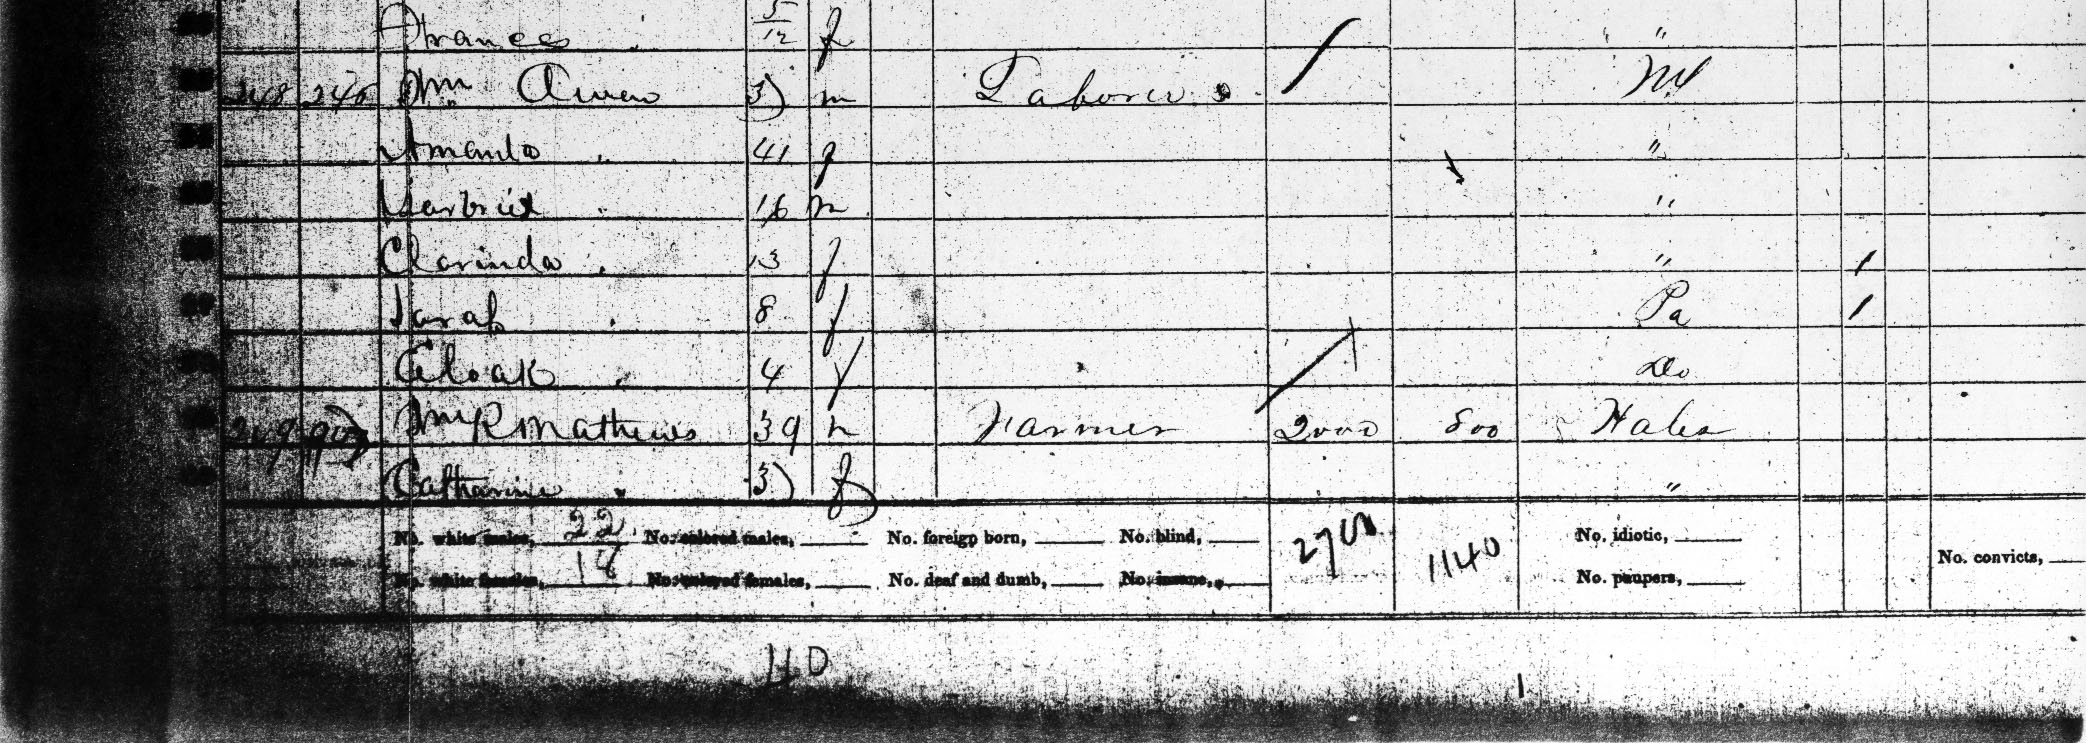 Frances " 5/12 f "
248 Wm Owen 37 m Laborer Md
Amanda " 41 f "
16 m "
Clarinda " 13 f " /
Sarah " 8 f Pa /
" 4 f Do
249 Wm R Mathews 39 m Farmer 2000 800 Wales
Catharine " 37 f "
No. white males, 22 No. colored males, No. foreign born, No. blind, 2700 1140 No. idiotic, No. convicts,
No. white females, 18 No. colored females, No. deaf and dumb, No. insane, No. paupers,
40